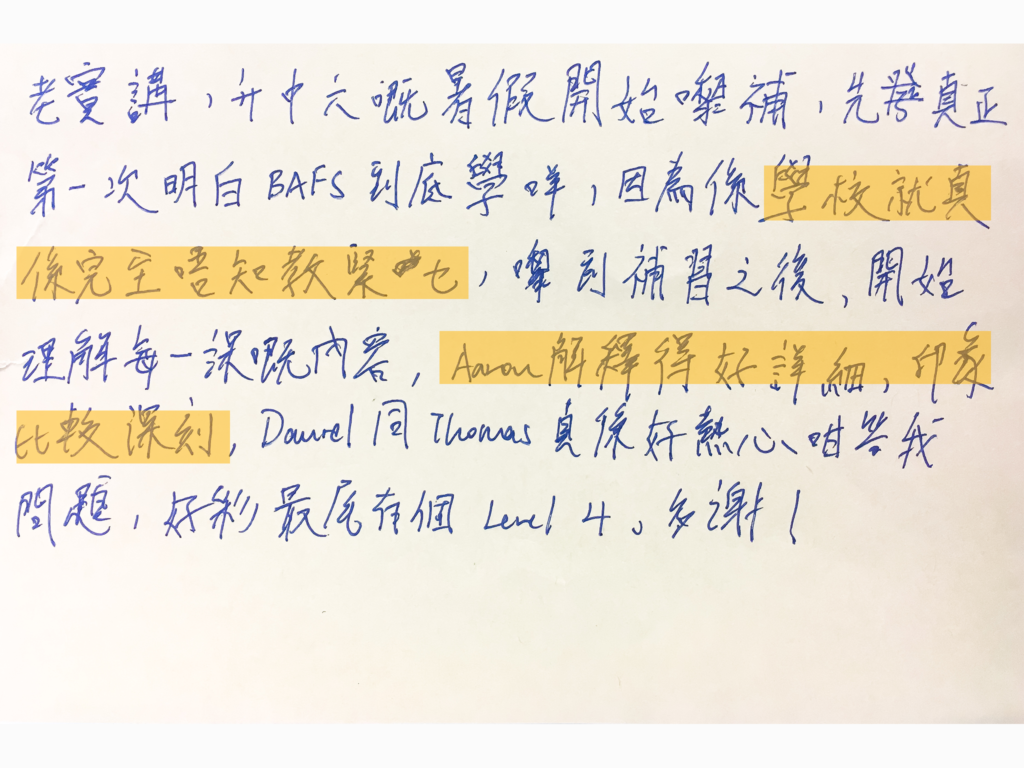 老實講，升中六嘅暑假開始嚟補，先發真正
第一次明白BAFS到底學咩，因為係學校就真
係完全唔知教緊乜，嚟到補習之後，開始
理解每一課嘅內容，Aaron解釋得好詳細，印象
比較深刻，Daniel同Thomas真係好熱心咁答我
問題，好彩最尾有個Level 4。多謝！